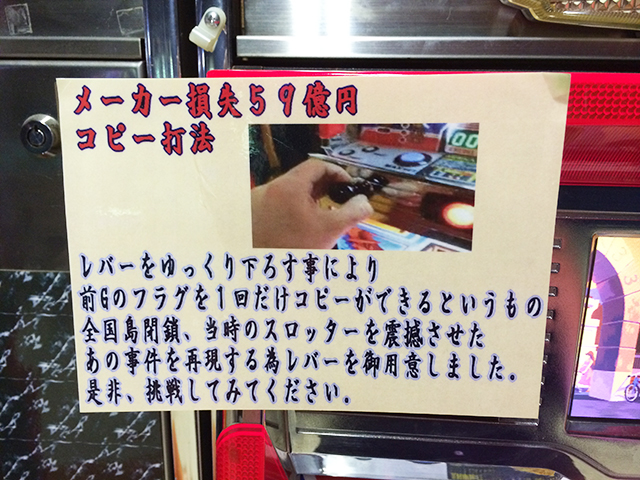 メーカー損失59億円
コピー打法
レバーをゆっくり下ろす事により
前Gのフラグを1回だけコピーができるというもの
全国島閉鎖、当時のスロッターを震撼させた
あの事件を再現する為レバーを御用意しました。
是非、挑戦してみてください。